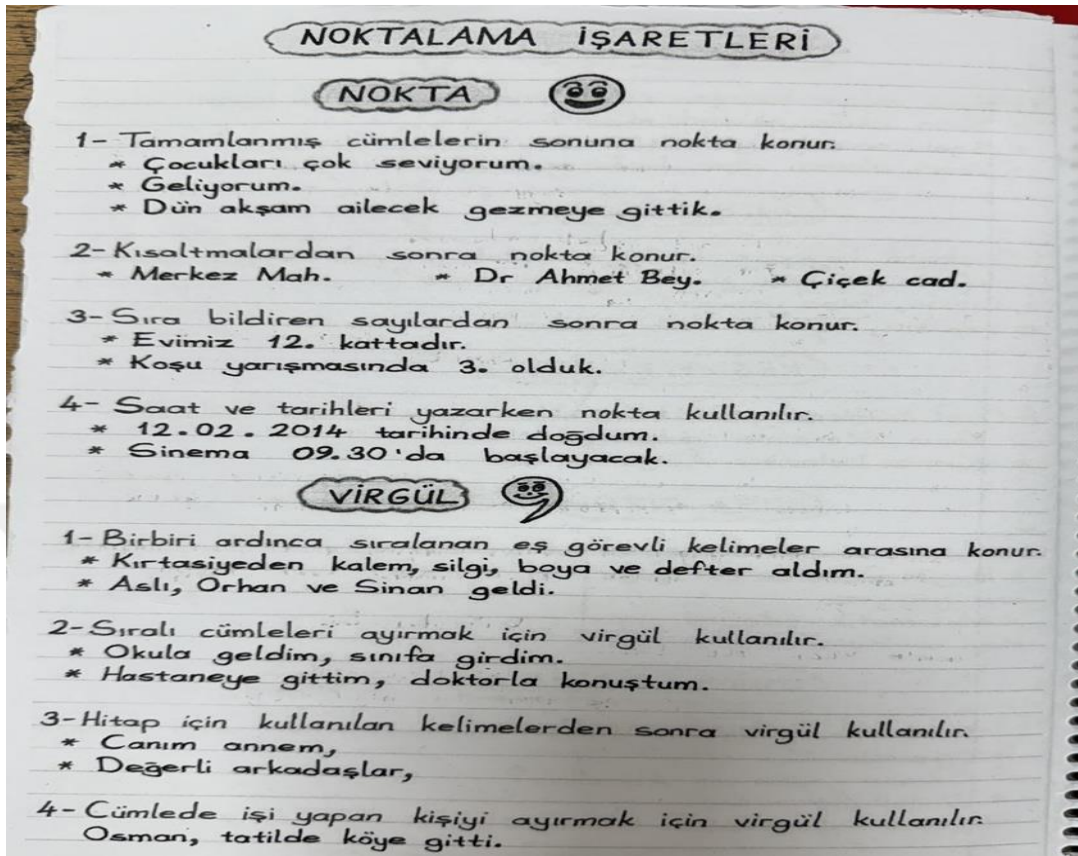 NOKTALAMA İŞARETLERİ
NOKTA
1- Tamamlanmış cümlelerin sonuna nokta konur.
* Çocukları çok seviyorum.
* Geliyorum.
* Dün akşam ailecek gezmeye gittik.
2- Kısaltmalardan sonra nokta konur.
* Merkez Mah. * Dr Ahmet Bey. * Çiçek cad.
3- Sıra bildiren sayılardan sonra nokta konur.
* Evimiz 12. kattadır.
* Koşu yarışmasında 3. olduk.
4- Saat ve tarihleri yazarken nokta kullanılır.
* 12.02.2014 tarihinde doğdum.
* Sinema 09.30'da başlayacak.
VİRGÜL
1- Birbiri ardınca sıralanan eş görevli kelimeler arasına konur.
* Kırtasiyeden kalem, silgi, boya ve defter aldım.
* Aslı, Orhan ve Sinan geldi.
2- Sıralı cümleleri ayırmak için virgül kullanılır.
* Okula geldim, sınıfa girdim.
* Hastaneye gittim, doktorla konuştum.
3- Hitap için kullanılan kelimelerden sonra virgül kullanılır.
* Canım annem,
* Değerli arkadaşlar,
4- Cümlede işi yapan kişiyi ayırmak için virgül kullanılır.
Osman, tatilde köye gitti.